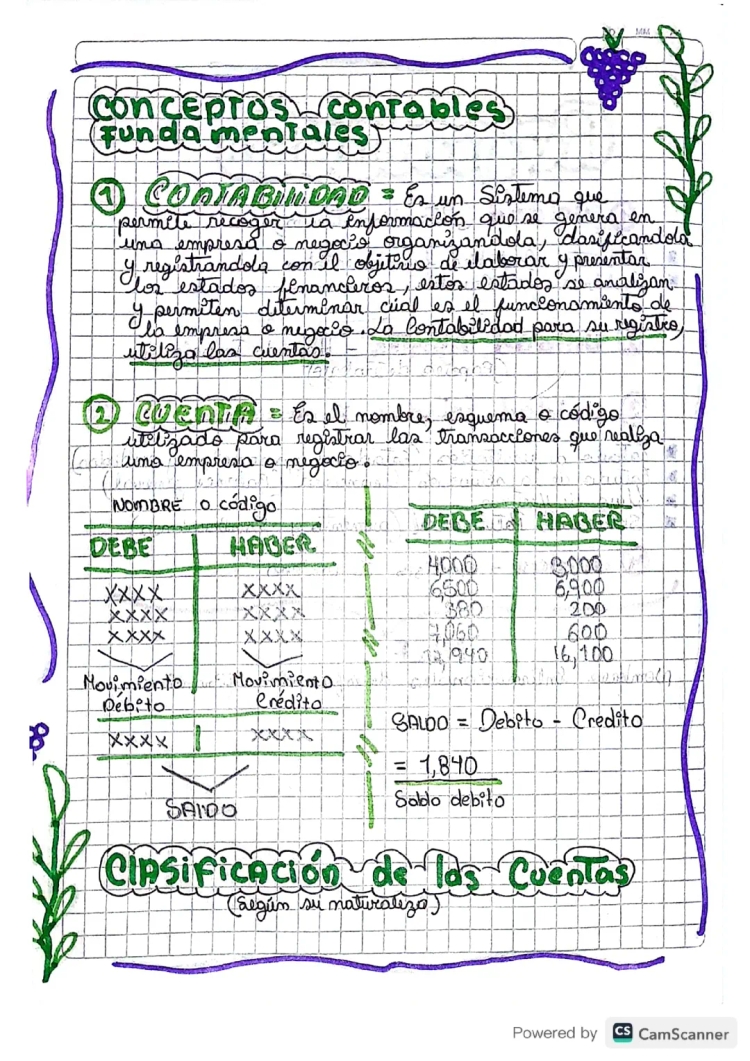 CONCEPTOS contables
Fundamentales
1 CONTABILIDAD = Es un Sistema que
permite recoger la información que se genera en
una empresa o negocio organizandola, clasificandola
y registrandola con el objetivo de elaborar y presentar
los estados financieros, estos estados se analizan
y permiten determinar cúal es el funcionamiento de
la empresa o negocio. La Contabilidad para su registro,
utiliza las cuentas.
2 CUENTA = Es el nombre, esquema o código
utilizado para registrar las transacciones que realiza
una empresa o negocio.
NOMBRE o código
DEBE HABER
XXXX XXXX
XXXX XXXX
XXXX XXXX
Movimiento Movimiento
Débito Crédito
XXXX XXXX
SALDO
DEBE HABER
4000 3000
6500 6,900
380 200
7,060 600
16,100
SALDO = Debito - Credito
= 1,840
Saldo debito
Clasificación de las Cuentas
(Según su naturaleza)
Powered by CS CamScanner